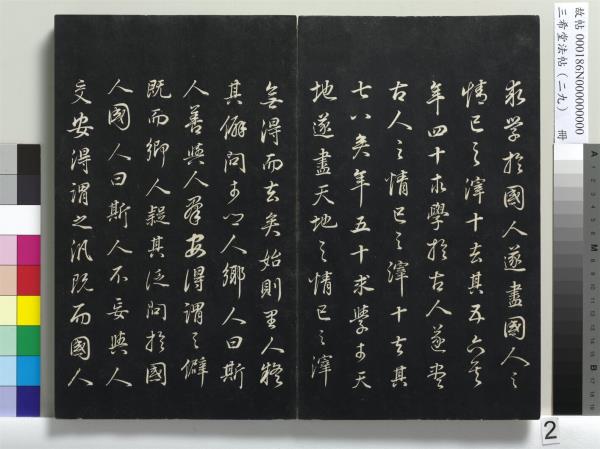 求学於國人遂盡國人之
情已之滓十去其五六矣
年四十求學於古人遂盡
古人之情已之滓十去其
七八矣年五十求學于天
地遂盡天地之情已之滓
無得而去矣始則里人疑
其僻問于鄉人鄉人曰斯
人善與人群安得謂之僻
既而鄉人疑其泛問於國
人國人曰斯人不妄與人
交安得謂之汎既而國人
故帖 000186N000000000
三希堂法帖（二九） 冊
2